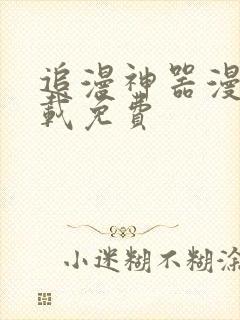 追漫神器漫
载免费
小迷糊不糊涂